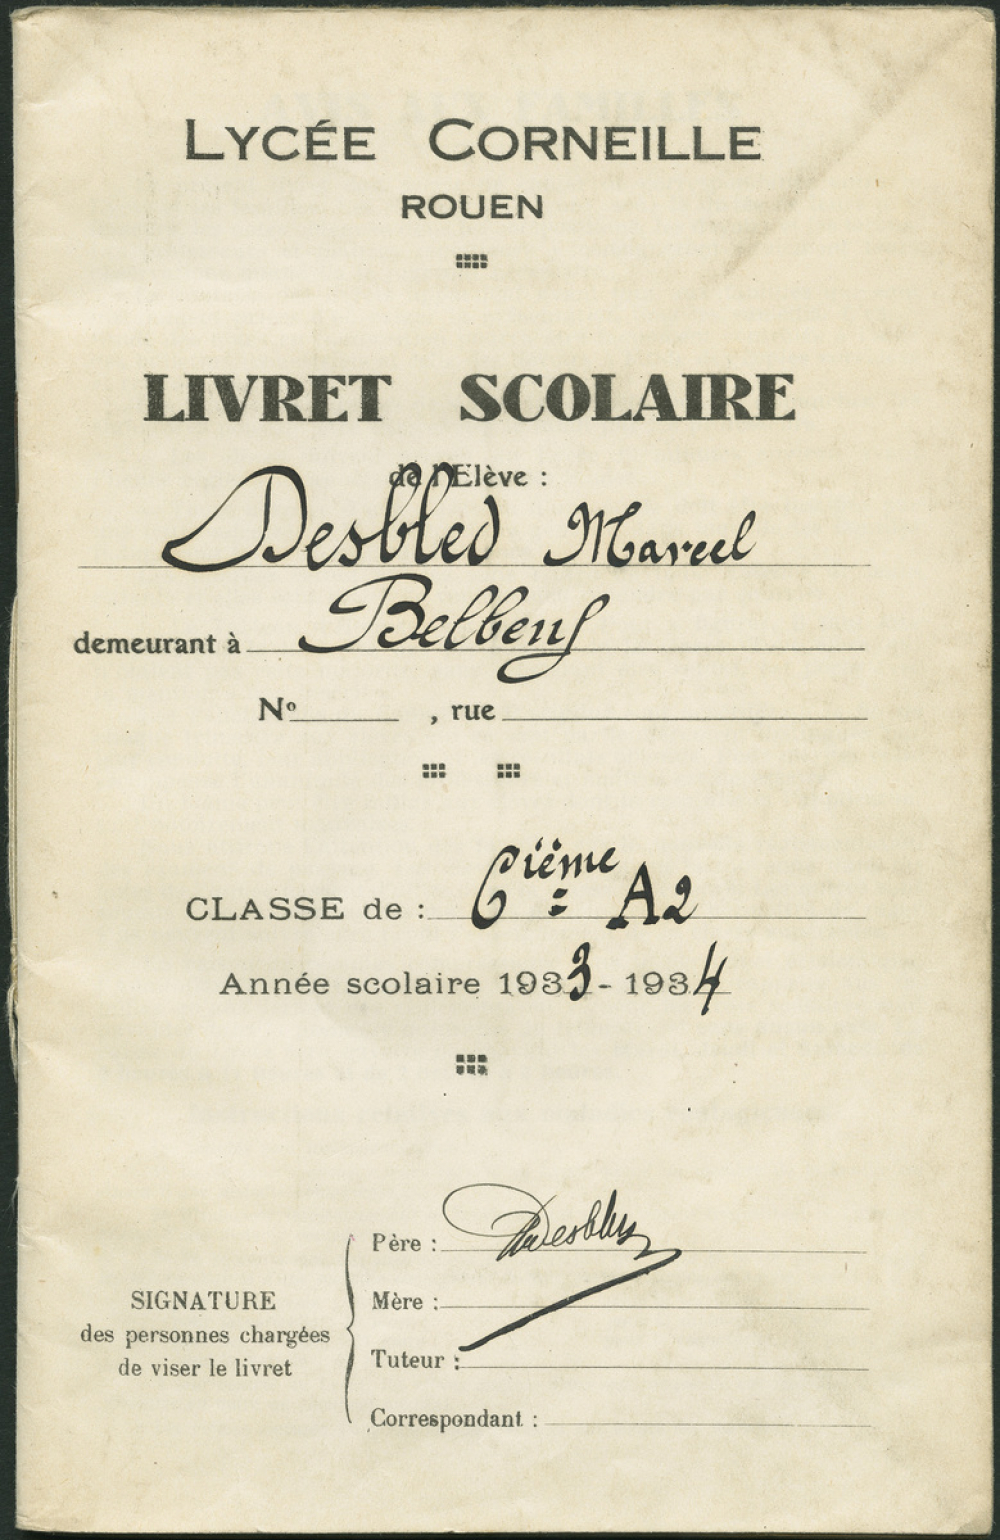 LYCÉE CORNEILLE
ROUEN
LIVRET SCOLAIRE
de l'Elève :
Desbled Marcel
demeurant à Belbeuf
No , rue
CLASSE de : 6ième A2
Année scolaire 1933 - 1934
SIGNATURE
des personnes chargées
de viser le livret
Père :
Mère :
Tuteur :
Correspondant :